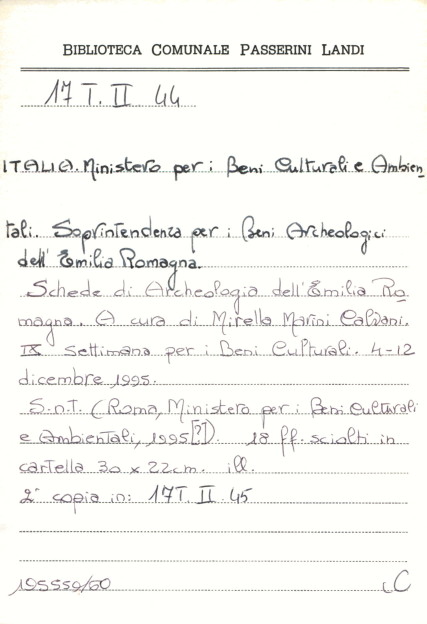 BIBLIOTECA COMUNALE PASSERINI LANDI
17 T. II 44
ITALIA. Ministero per i Beni Culturali e Ambien
tali. Soprintendenza per i Beni Archeologici
dell'Emilia Romagna.
Schede di Archeologia dell'Emilia Ro
magna. A cura di Mirella Marini Calvani.
IX settimana per i Beni Culturali. 4-12
dicembre 1995.
S.n.T. (Roma, Ministero per i Beni Culturali
e Ambientali, 1995[?]). 18 ff. sciolti in
cartella 30 x 22cm. ill.
2ª copia in: 17T. II 45
195559/60 C